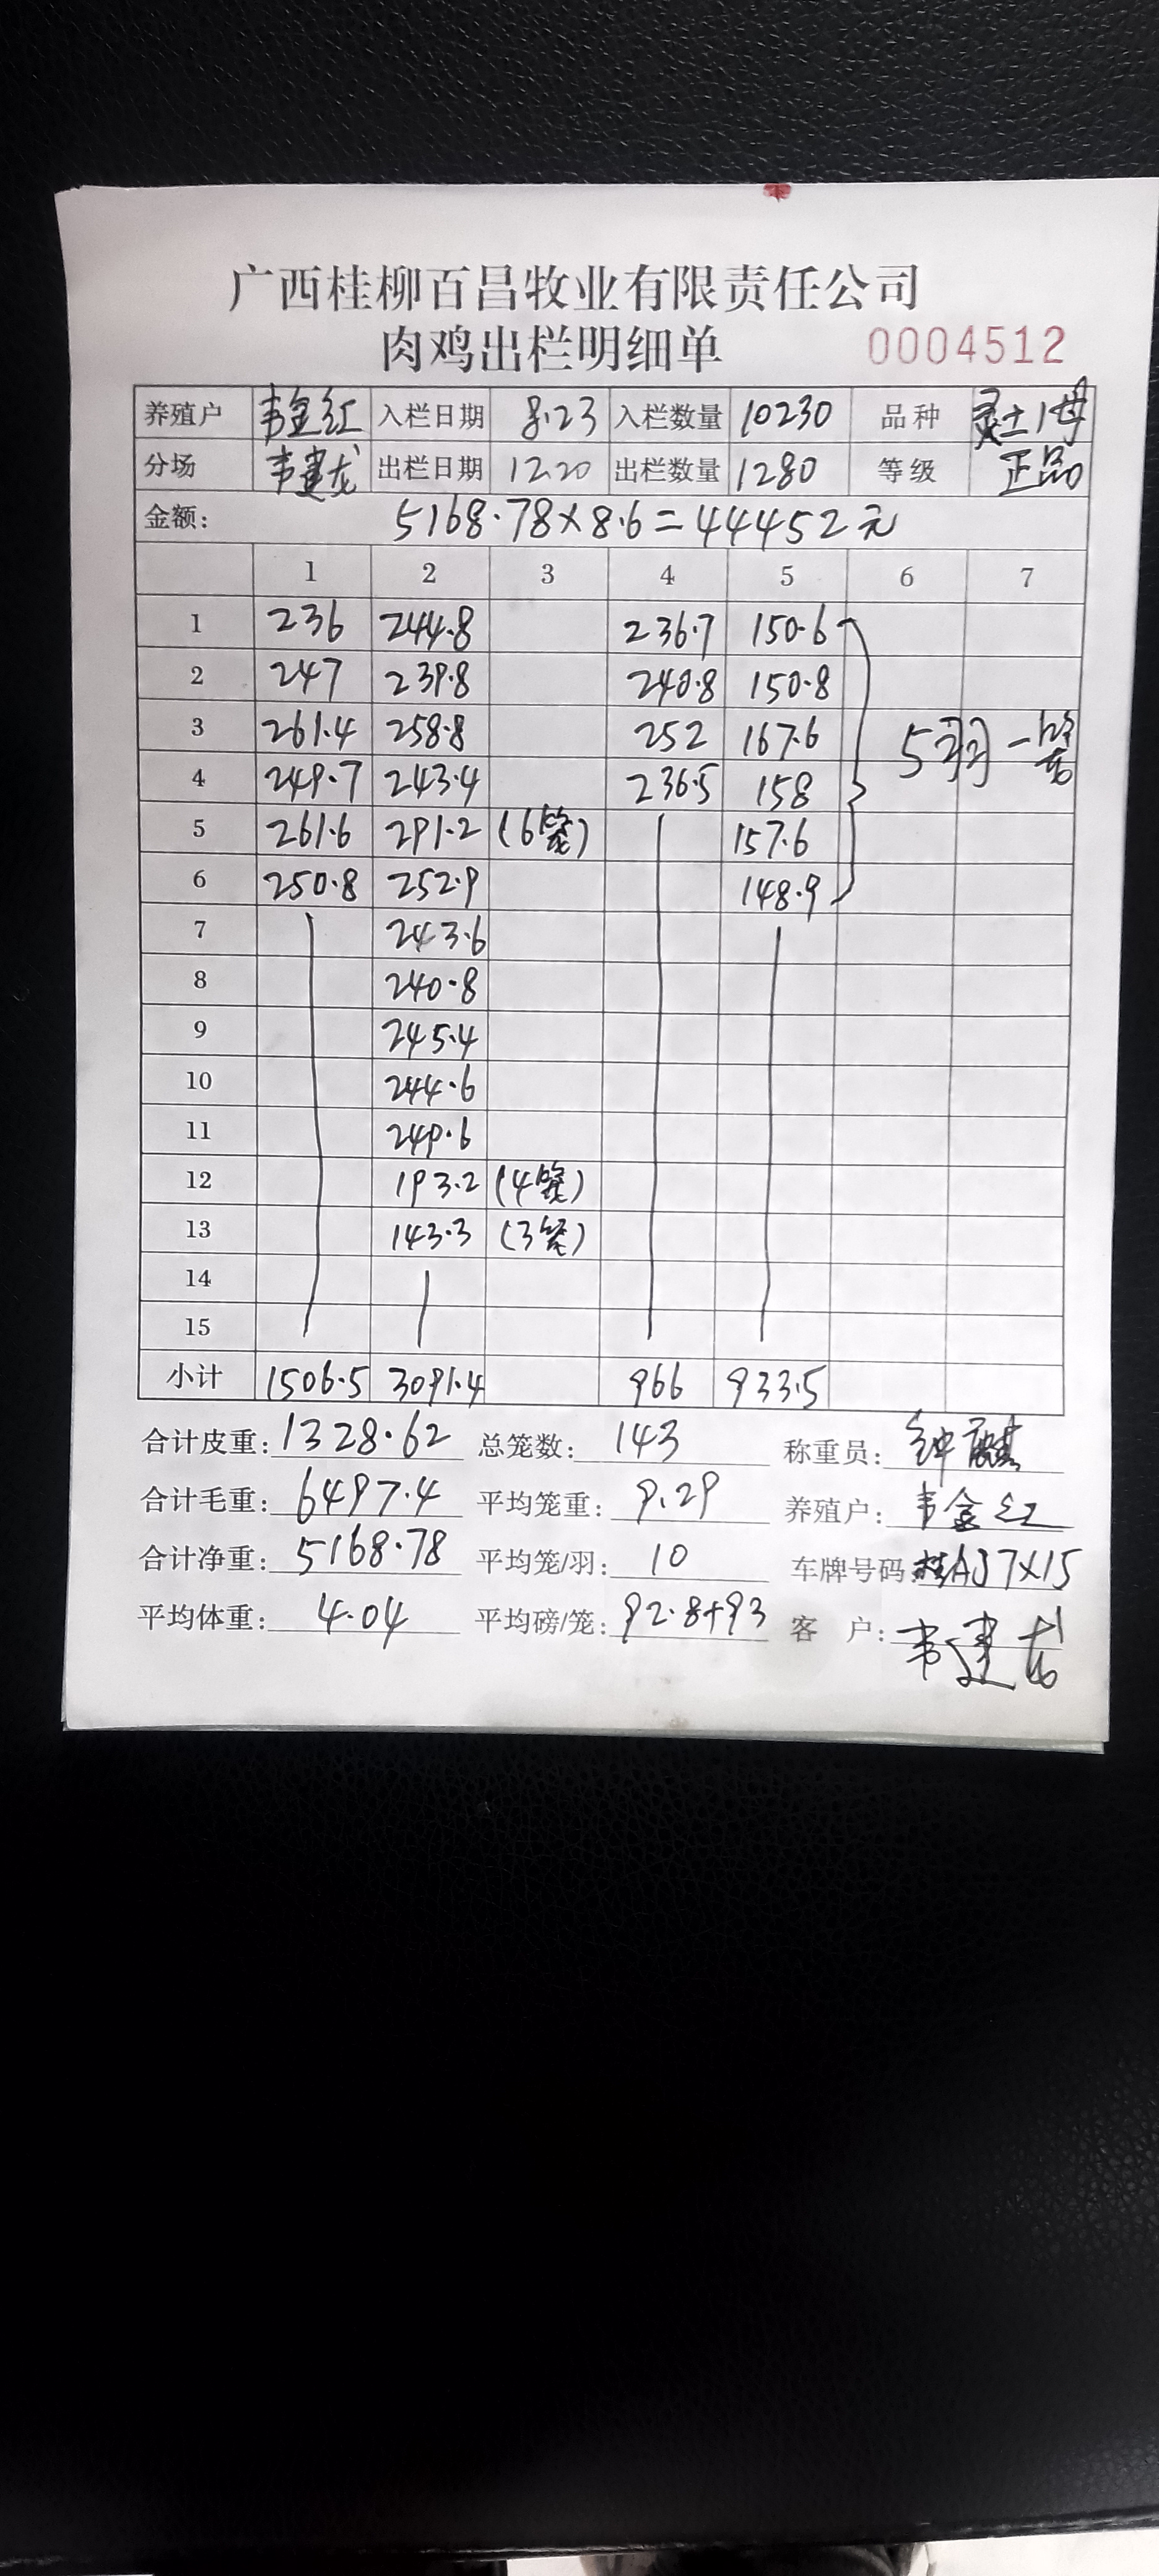 广西桂柳百昌牧业有限责任公司
肉鸡出栏明细单 0004512
养殖户 韦金红 入栏日期 8.23 入栏数量 10230 品种 灵土1母
分场 韦建龙 出栏日期 12.20 出栏数量 1280 等级 正品
金额: 5168.78×8.6=44452元
1 2 3 4 5 6 7
1 236 244.8 236.7 150.6
2 247 239.8 240.8 150.8
3 261.4 258.8 252 167.6 5羽一笼
4 249.7 243.4 236.5 158
5 261.6 291.2 (6笼) 157.6
6 250.8 252.9 148.9
7 243.6
8 240.8
9 245.4
10 244.6
11 249.6
12 193.2 (4笼)
13 143.3 (3笼)
14
15
小计 1506.5 3091.4 966 933.5
合计皮重: 1328.62 总笼数: 143 称重员: 钟麒
合计毛重: 6497.4 平均笼重: 9.29 养殖户: 韦金红
合计净重: 5168.78 平均笼/羽: 10 车牌号码: 桂AJ7X15
平均体重: 4.04 平均磅/笼: 92.8+93 客 户: 韦建龙